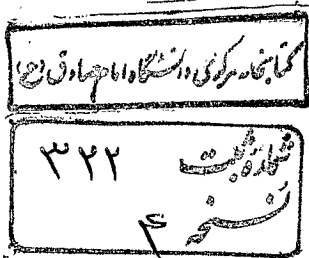 کتابخانه مرکزی دانشگاه امام صادق (ع)
شماره ثبت ۳۲۲
نسخه ۴